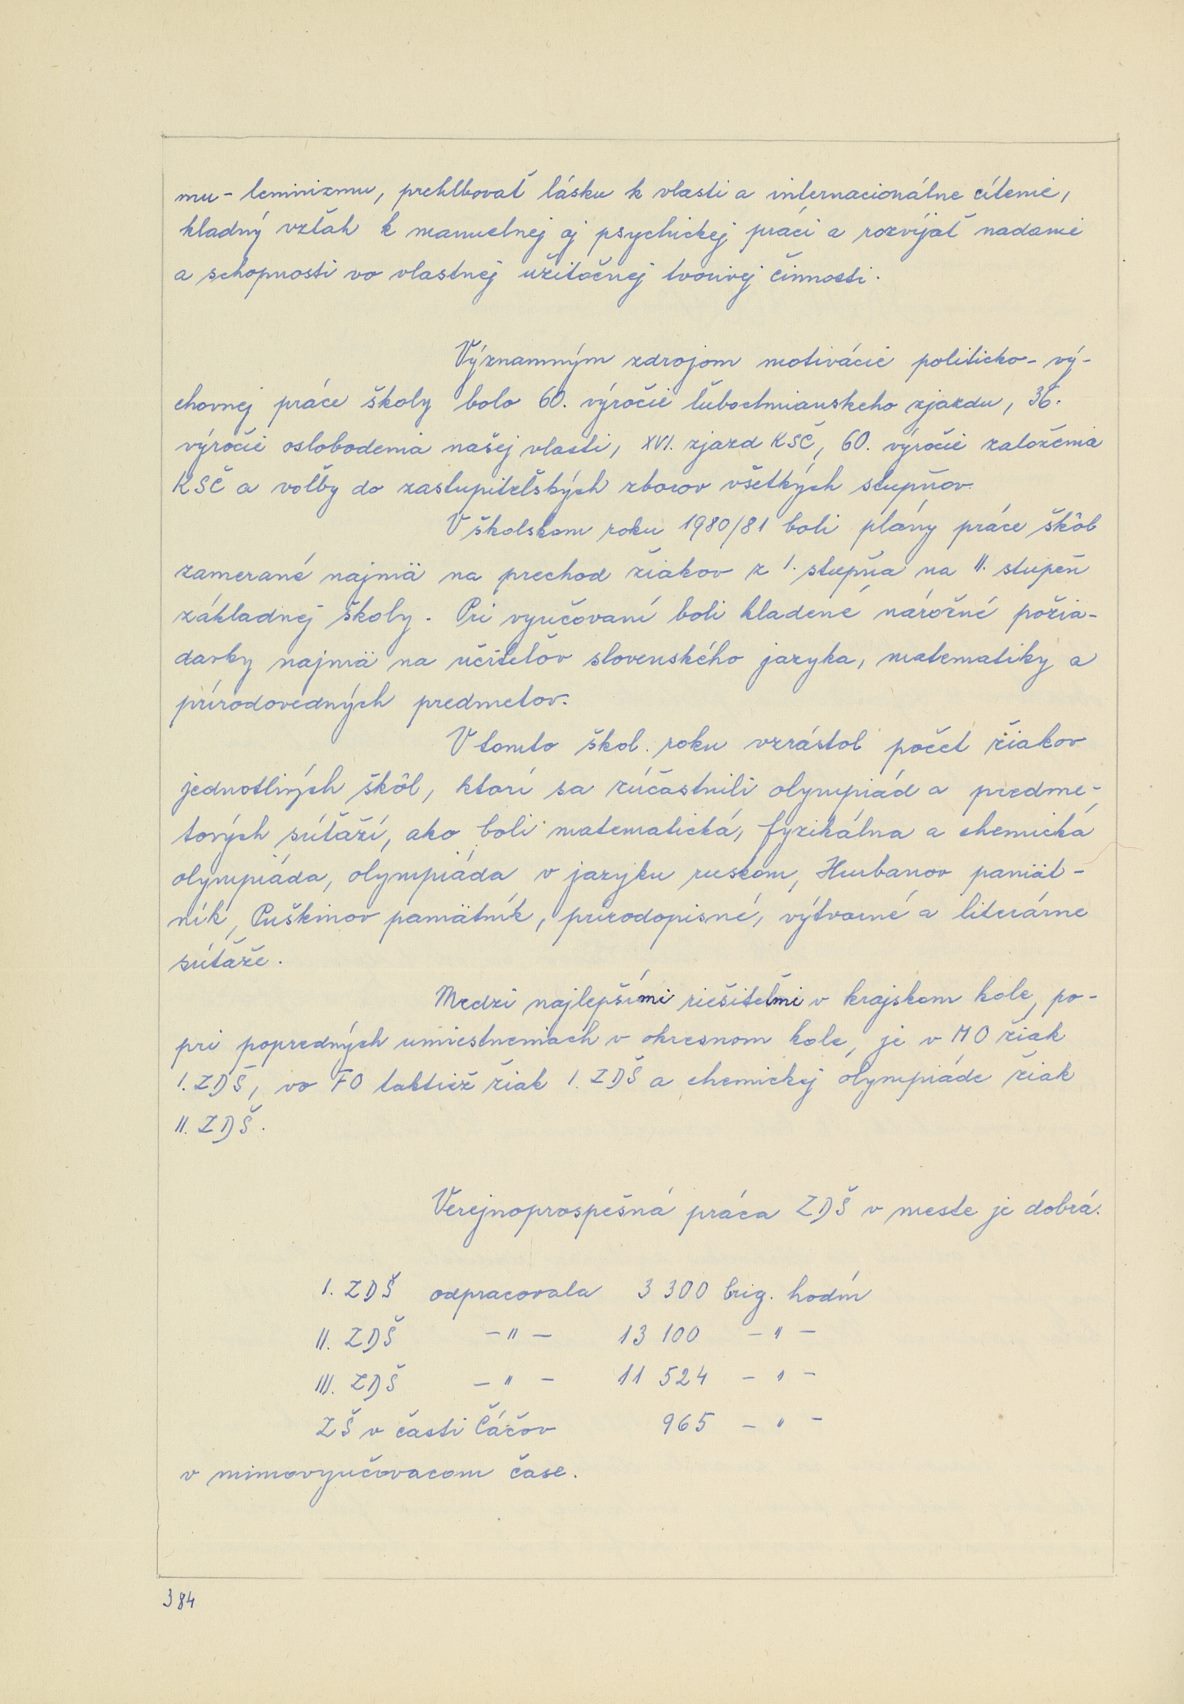 mu - leninizmu, prehlbovať lásku k vlasti a internacionálne cítenie,
kladný vzťah k manuelnej aj psychickej práci a rozvíjať nadanie
a schopnosti vo vlastnej užitočnej tvorivej činnosti.
Významným zdrojom motivácie politicko - vý-
chovnej práce školy bolo 60. výročie ľubochnianskeho zjazdu, 36.
výročie oslobodenia našej vlasti, XVI. zjazd KSČ, 60. výročie založenia
KSČ a voľby do zastupiteľských zborov všetkých stupňov.
V školskom roku 1980/81 boli plány práce škôl
zamerané najmä na prechod žiakov z I. stupňa na II. stupeň
základnej školy. Pri vyučovaní boli kladené náročné požia-
davky najmä na učiteľov slovenského jazyka, matematiky a
prírodovedných predmetov.
V tomto škol. roku vzrástol počet žiakov
jednotlivých škôl, ktorí sa zúčastnili olympiád a predme-
tových súťaží, ako boli matematická, fyzikálna a chemická
olympiáda, olympiáda v jazyku ruskom, Hurbanov pamät-
ník, Puškinov pamätník, prírodopisné, výtvarné a literárne
súťaže.
Medzi najlepšími riešiteľmi v krajskom kole, po-
pri popredných umiestneniach v okresnom kole, je v MO žiak
I. ZDŠ, vo FO taktiež žiak I. ZDŠ a chemickej olympiáde žiak
II. ZDŠ.
Verejnoprospešná práca ZDŠ v meste je dobrá.
I. ZDŠ odpracovala 3 300 brig. hodín
II. ZDŠ - " - 13 100 - " -
III. ZDŠ - " - 11 524 - " -
ZŠ v časti Čáčov 965 - " -
v mimovyučovacom čase.
384